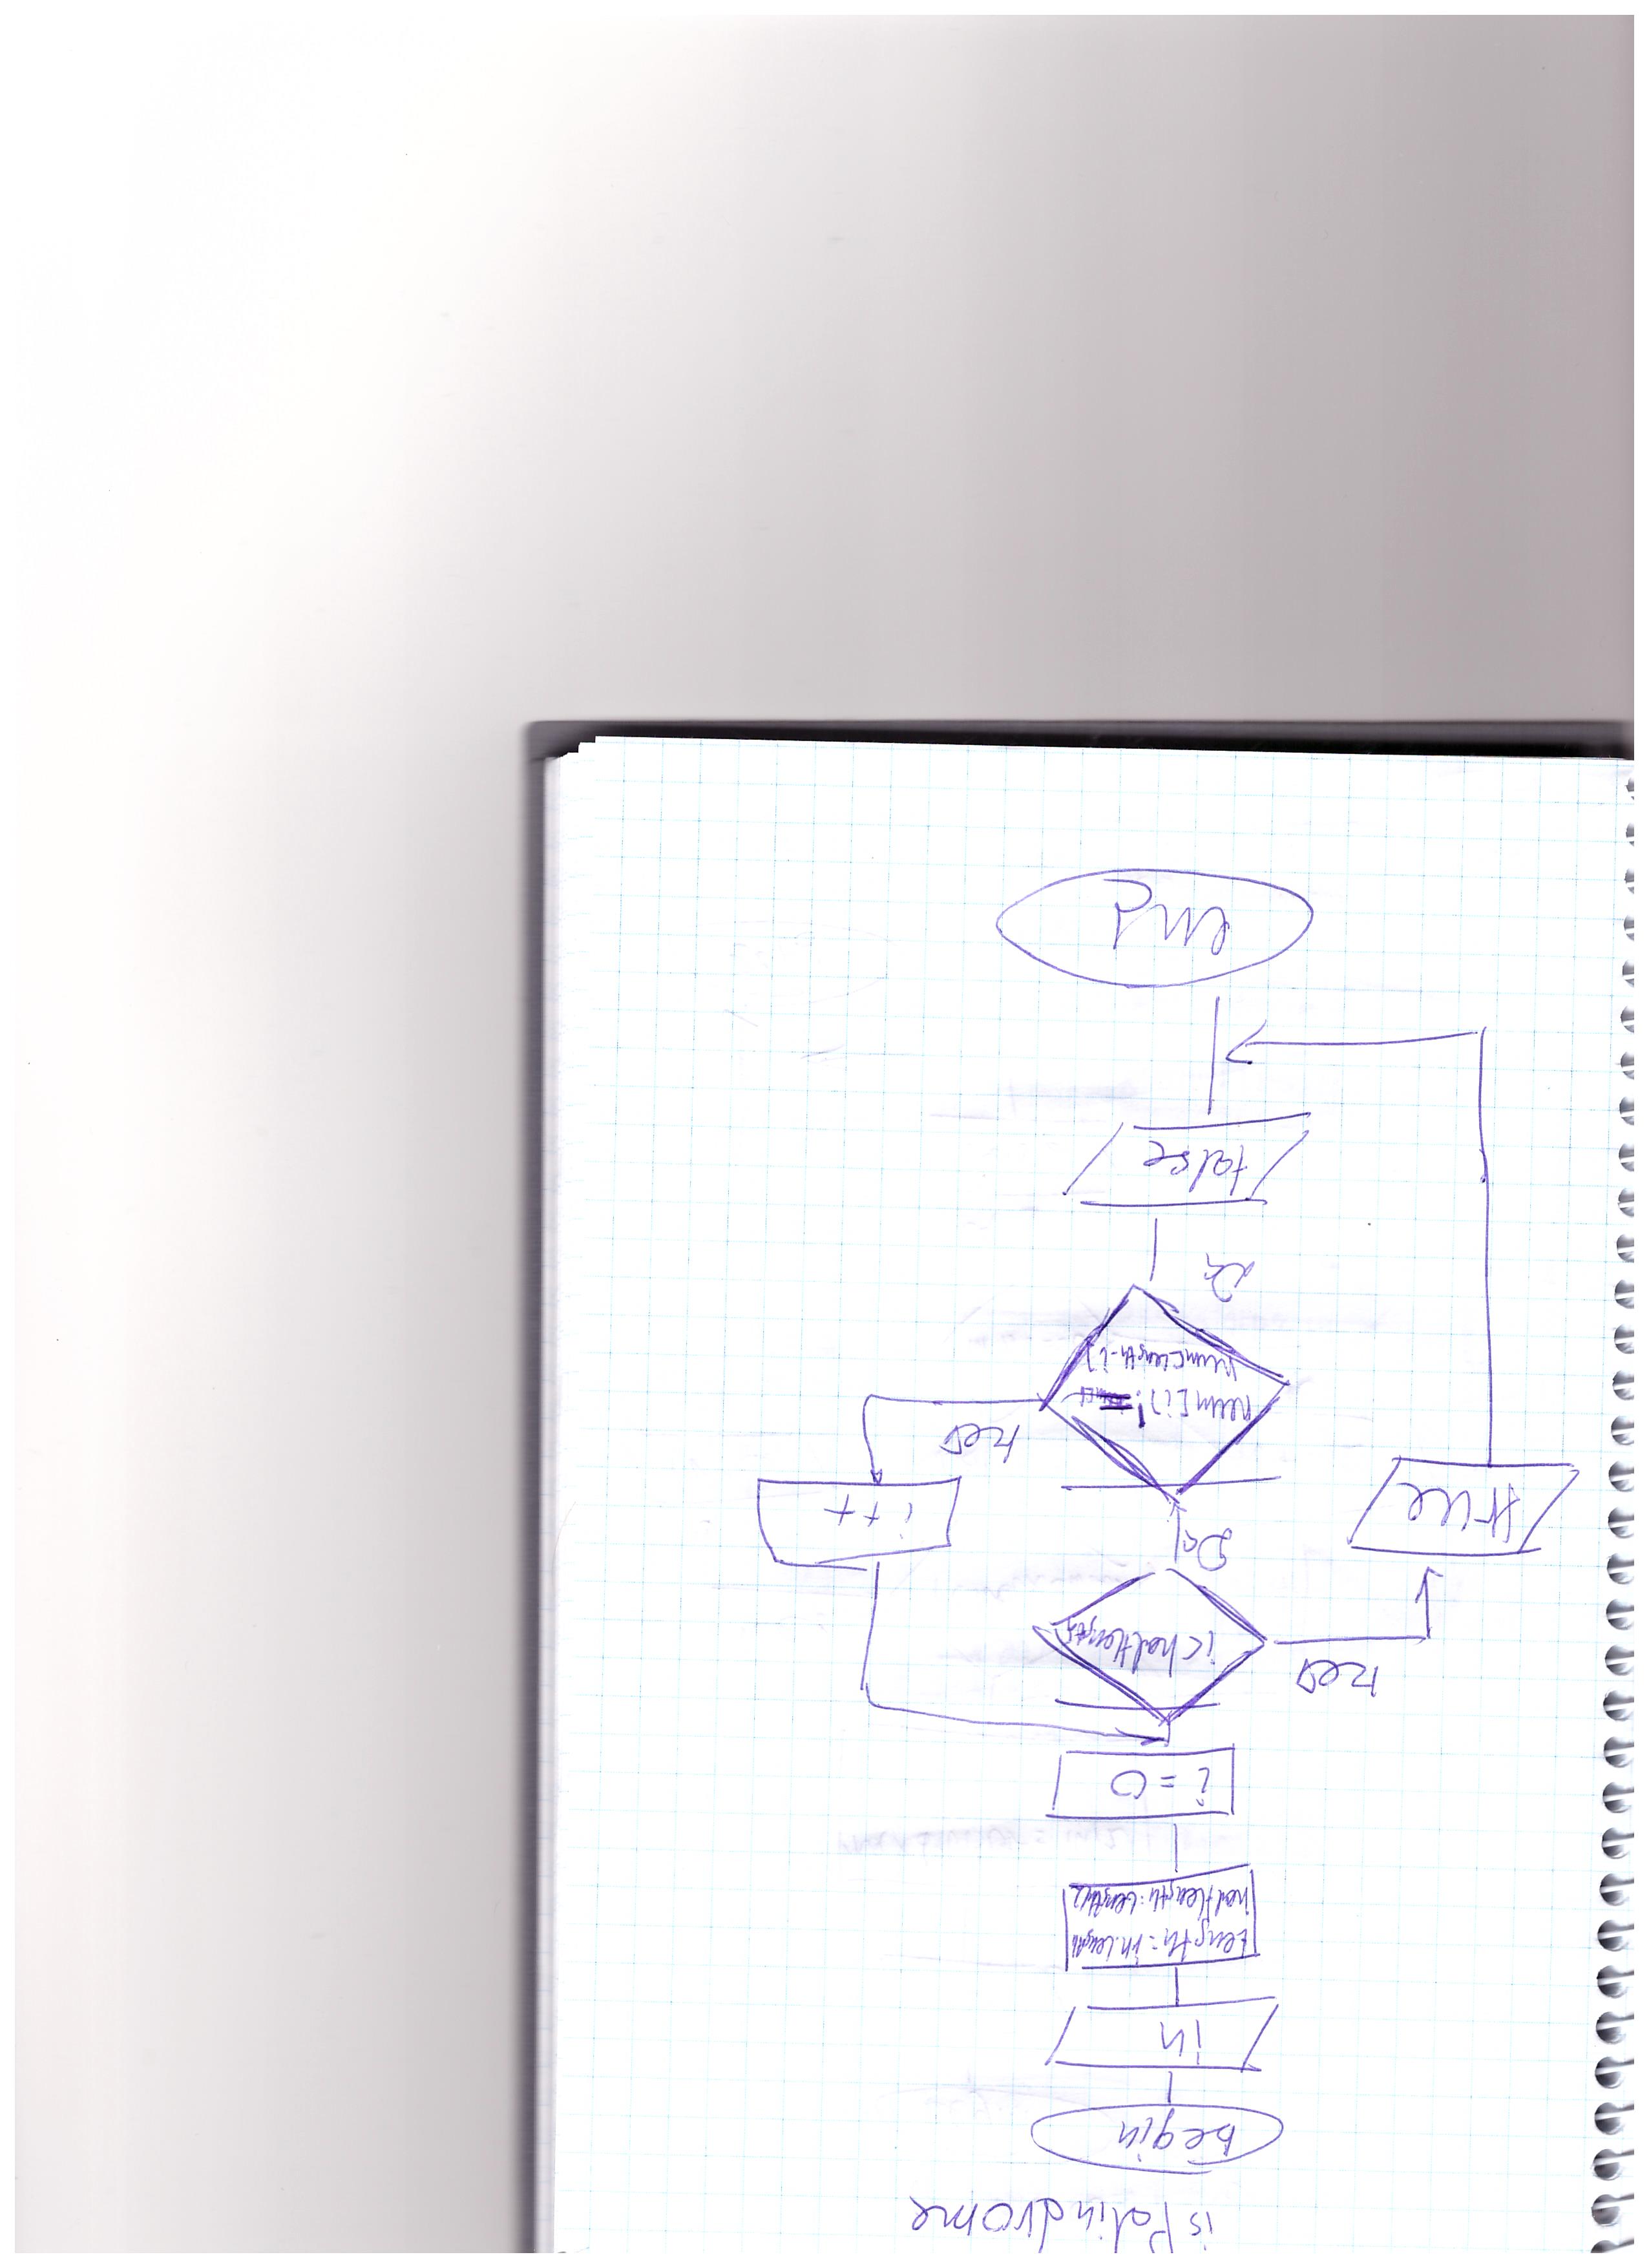 isPalindrome
begin
in
Length = in.Length
halfLength = Length/2
i = 0
нет
i < halfLength
Да
true
i++
нет
num[i] !=
num[length-i]
Да
false
end